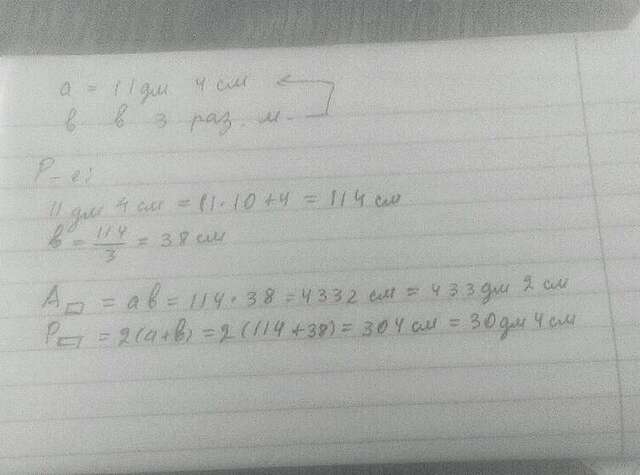 a = 11 дм 4 см
в в 3 раз. м.
Р-е:
11 дм 4 см = 11·10+4 = 114 см
в = 114/3 = 38 см
A▭ = ав = 114·38 = 4332 см = 433 дм 2 см
P▭ = 2(а+в) = 2(114+38) = 304 см = 30 дм 4 см